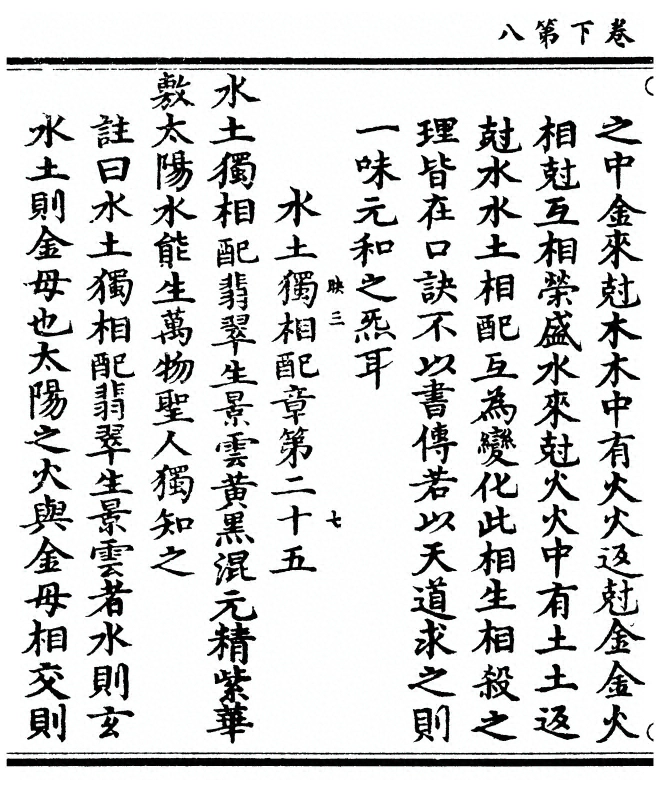 卷下第八
之中金來尅木木中有火火返尅金金火
相尅互相榮盛水來尅火火中有土土返
尅水水土相配互為變化此相生相殺之
理皆在口訣不以書傳若以天道求之則
一味元和之炁耳
映三
七
水土獨相配章第二十五
水土獨相配翡翠生景雲黃黑混元精紫華
敷太陽水能生萬物聖人獨知之
註曰水土獨相配翡翠生景雲者水則玄
水土則金母也太陽之火與金母相交則